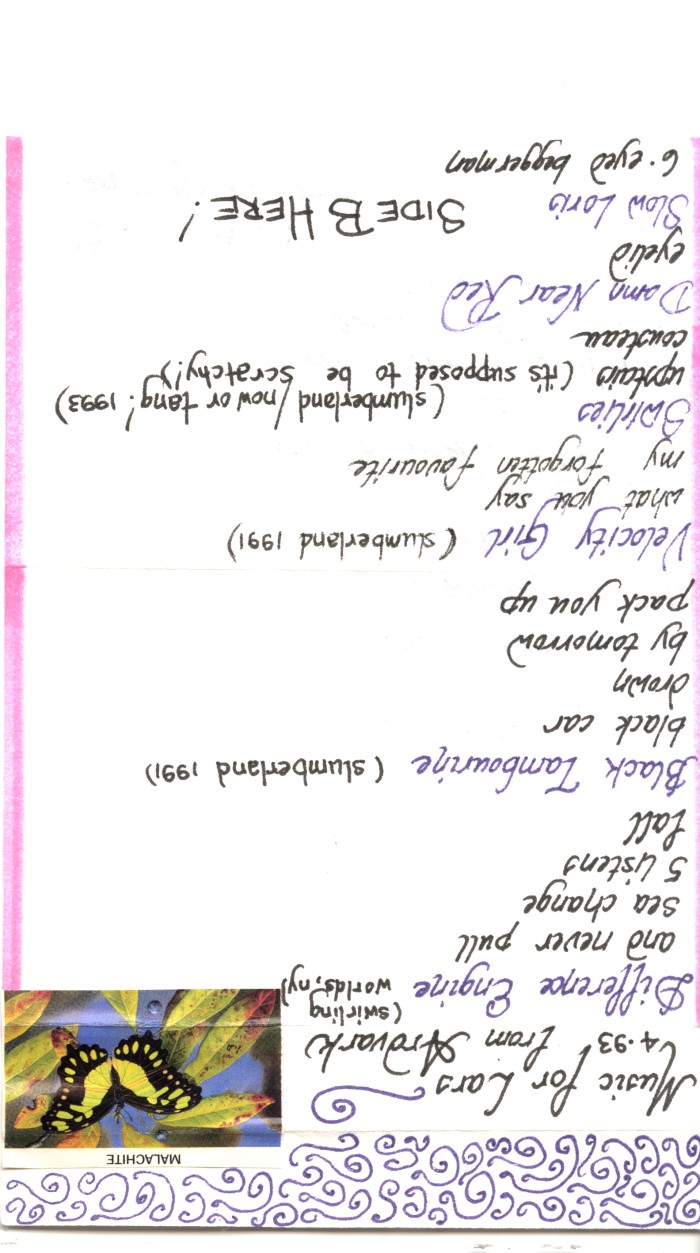 MALACHITE
Music for Lars
4.93 from Ardvark
Difference Engine (swirling worlds, ny)
and never pull
sea change
5 listens
fall
Black Tambourine (slumberland 1991)
black car
drown
by tomorrow
pack you up
Velocity Girl (slumberland 1991)
what you say
my forgotten favourite
Swirlies (slumberland/now or tang! 1993)
upstairs (it's supposed to be scratchy!)
cousteau
Damn Near Red
eyelid
Slow Loris
6-eyed beggerman
SIDE B HERE!